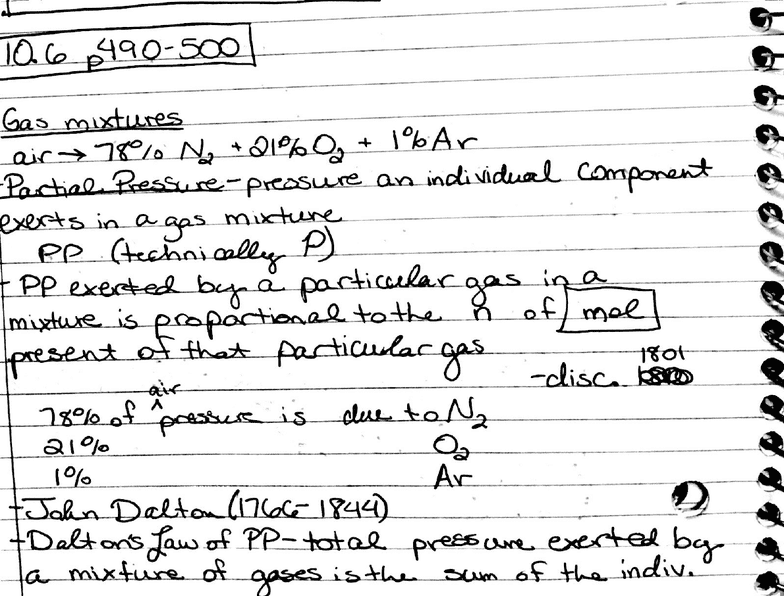 10.6 p490-500
Gas mixtures
air → 78% N₂ + 21% O₂ + 1% Ar
-Partial Pressure - pressure an individual component
exerts in a gas mixture
PP (technically P)
- PP exerted by a particular gas in a
mixture is proportional to the n of mol
present of that particular gas
1801
-disc.
air
78% of ^ pressure is due to N₂
21% O₂
1% Ar
-John Dalton (1766-1844)
-Dalton's Law of PP - total pressure exerted by
a mixture of gases is the sum of the indiv.